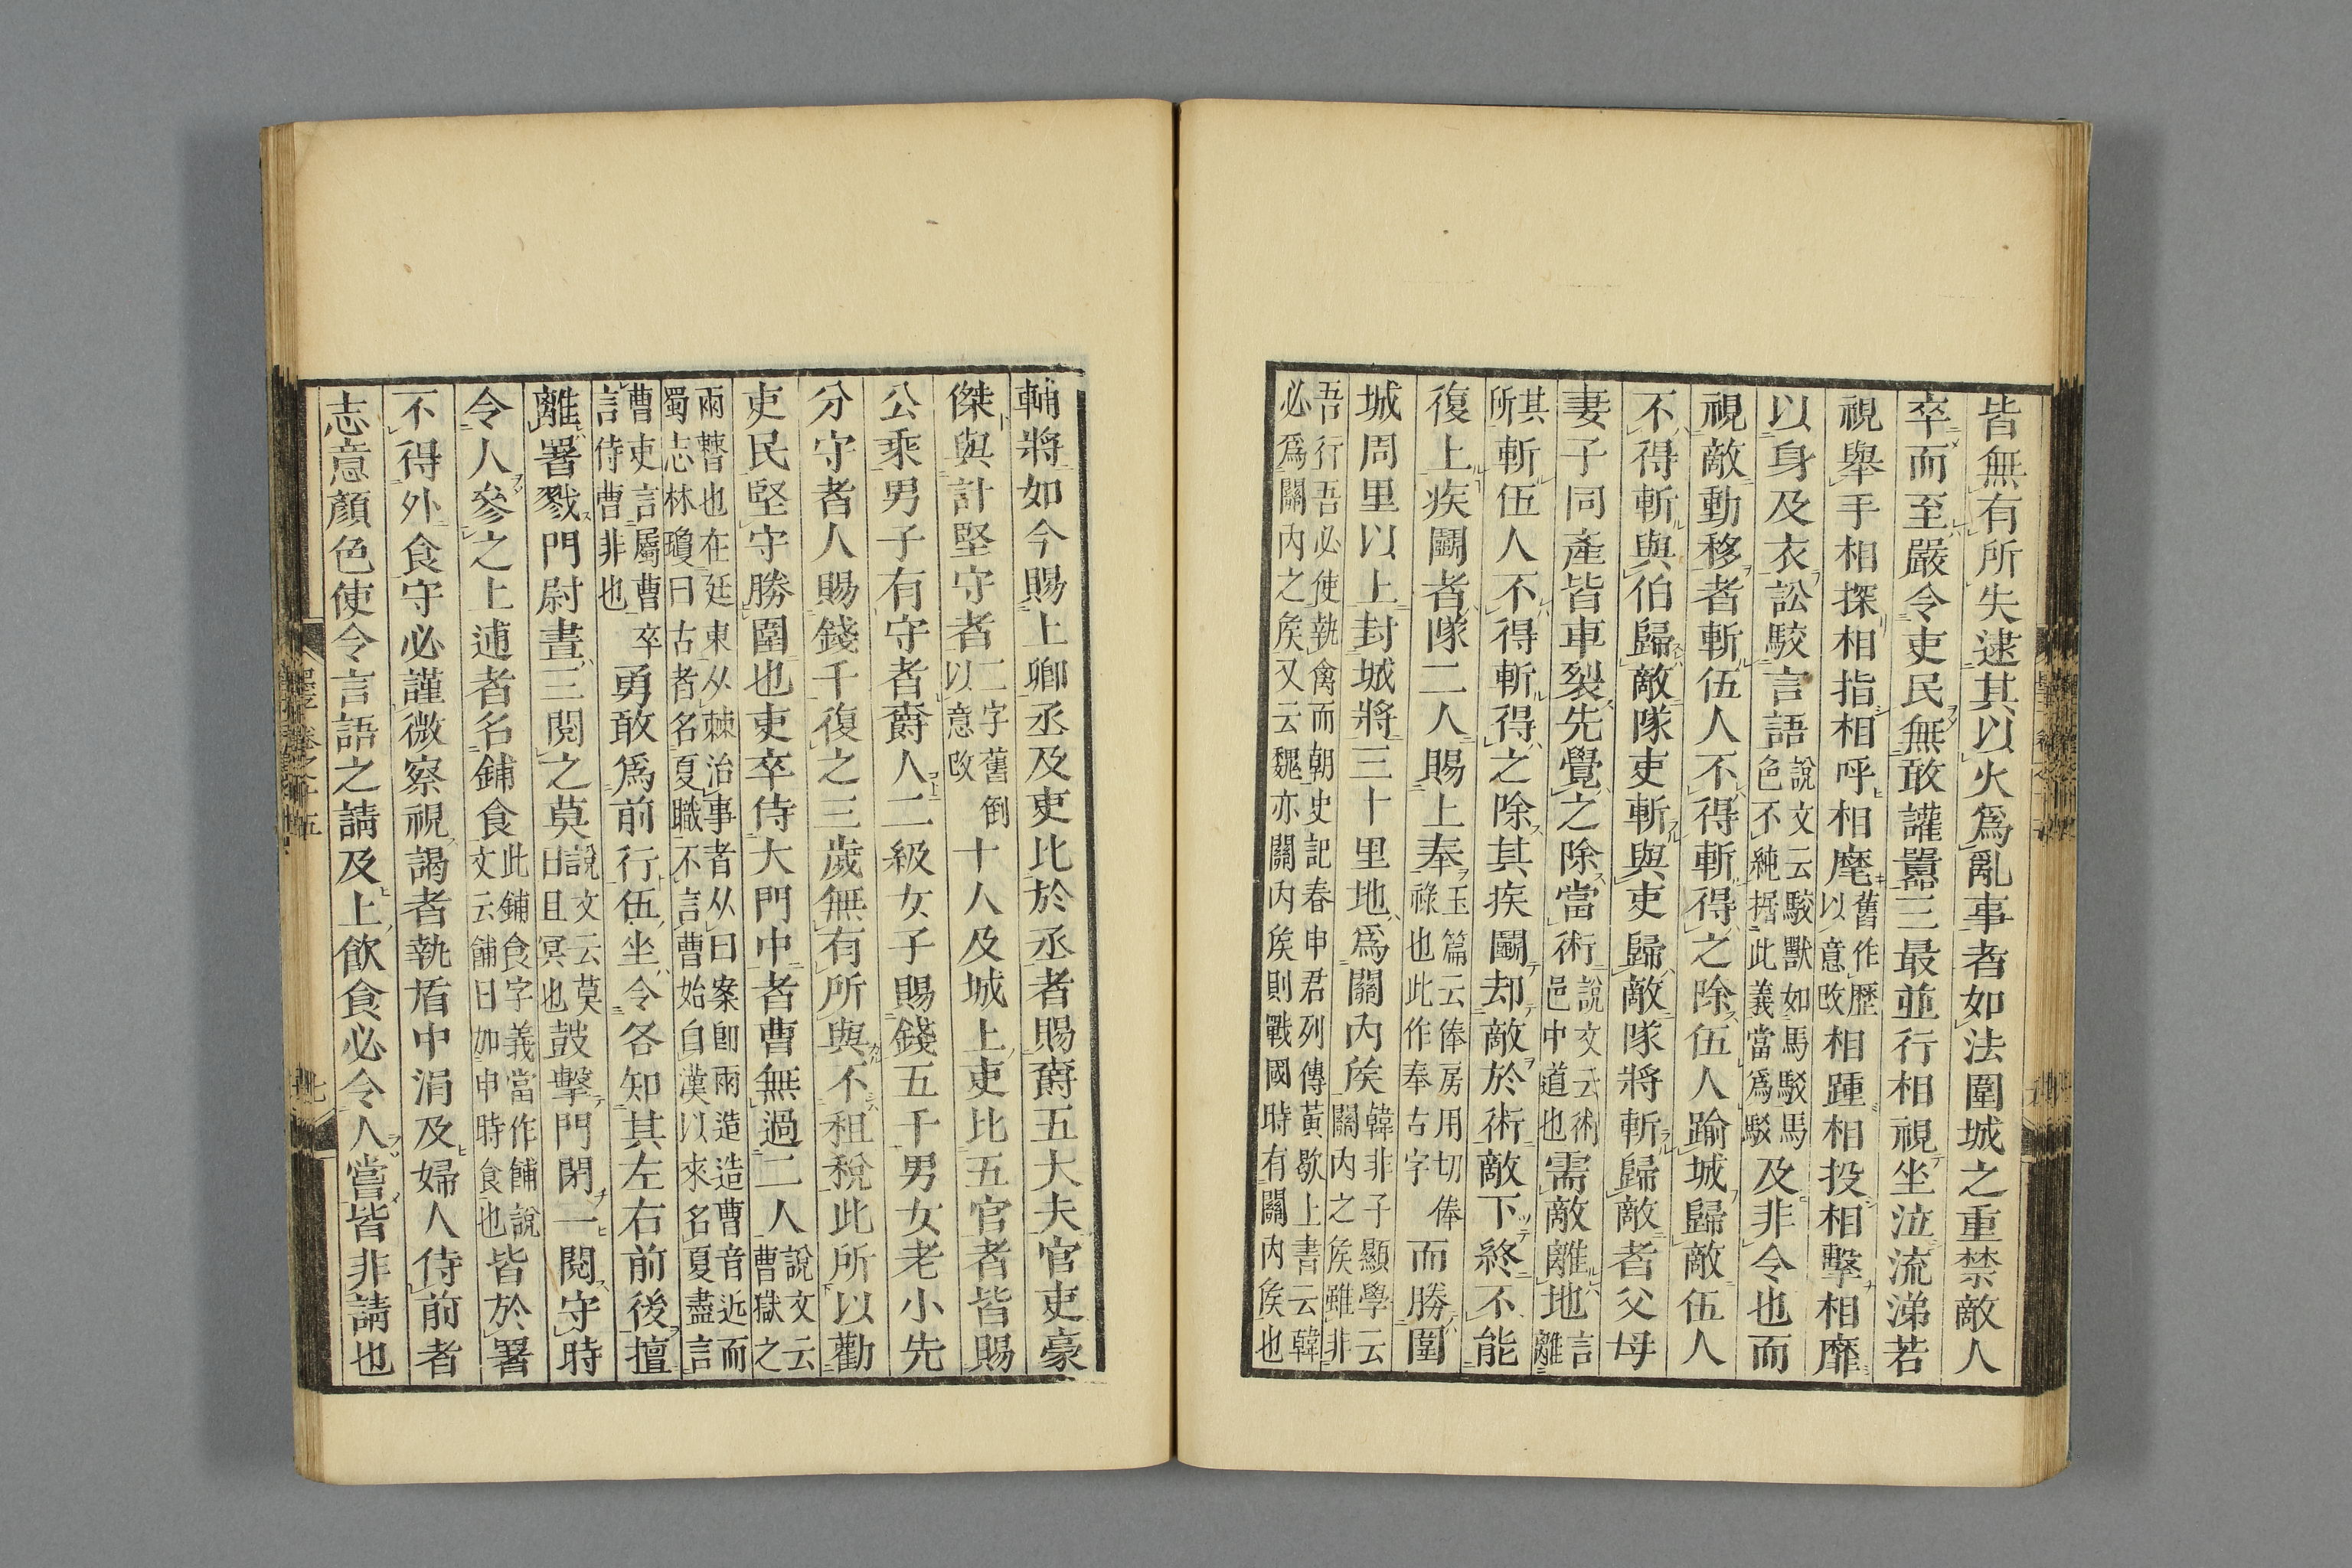 皆無有所失逮其以火爲亂事者如法圍城之重禁敵人
卒而至嚴令吏民無敢讙囂三最並行相視坐泣流涕若
視舉手相探相指相呼相麾舊作歷以意改相踵相投相擊相靡
以身及衣訟駮言語說文云駮獸如馬駁馬色不純据此義當爲駁及非令也而
視敵動移者斬伍人不得斬得之除伍人踰城歸敵伍人
不得斬與伯歸敵隊吏斬與吏歸敵隊將斬歸敵者父母
妻子同產皆車裂先覺之除當術說文云術邑中道也需敵離地言離
其所斬伍人不得斬得之除其疾鬭却敵於術敵下終不能
復上疾鬭者隊二人賜上奉玉篇云俸房用切俸祿也此作奉古字而勝圍
城周里以上封城將三十里地爲關內矦韓非子顯學云關內之矦雖非
吾行吾必使執禽而朝史記春申君列傳黃歇上書云韓必爲關內之矦又云魏亦關內矦則戰國時有關內矦也
輔將如今賜上卿丞及吏比於丞者賜爵五大夫官吏豪
傑與計堅守者二字舊倒以意改十人及城上吏比五官者皆賜
公乘男子有守者爵人二級女子賜錢五千男女老小先
分守者人賜錢千復之三歲無有所與不租稅此所以勸
吏民堅守勝圍也吏卒侍大門中者曹無過二人說文云曹獄之
兩曹也在廷東从㯥治事者从曰案卽兩造造曹音近而蜀志林瓊曰古者名夏職不言曹始自漢以來名夏盡言
曹吏言屬曹卒言侍曹非也勇敢爲前行伍坐令各知其左右前後擅
離署戮門尉晝三閱之莫說文云莫日且冥也鼓擊門閉一閱守時
令人參之上逋者名鋪食此鋪食字義當作餔說文云餔日加申時食也皆於署
不得外食守必謹微察視謁者執盾中涓及婦人侍前者
志意顏色使令言語之請及上飲食必令人嘗皆非請也